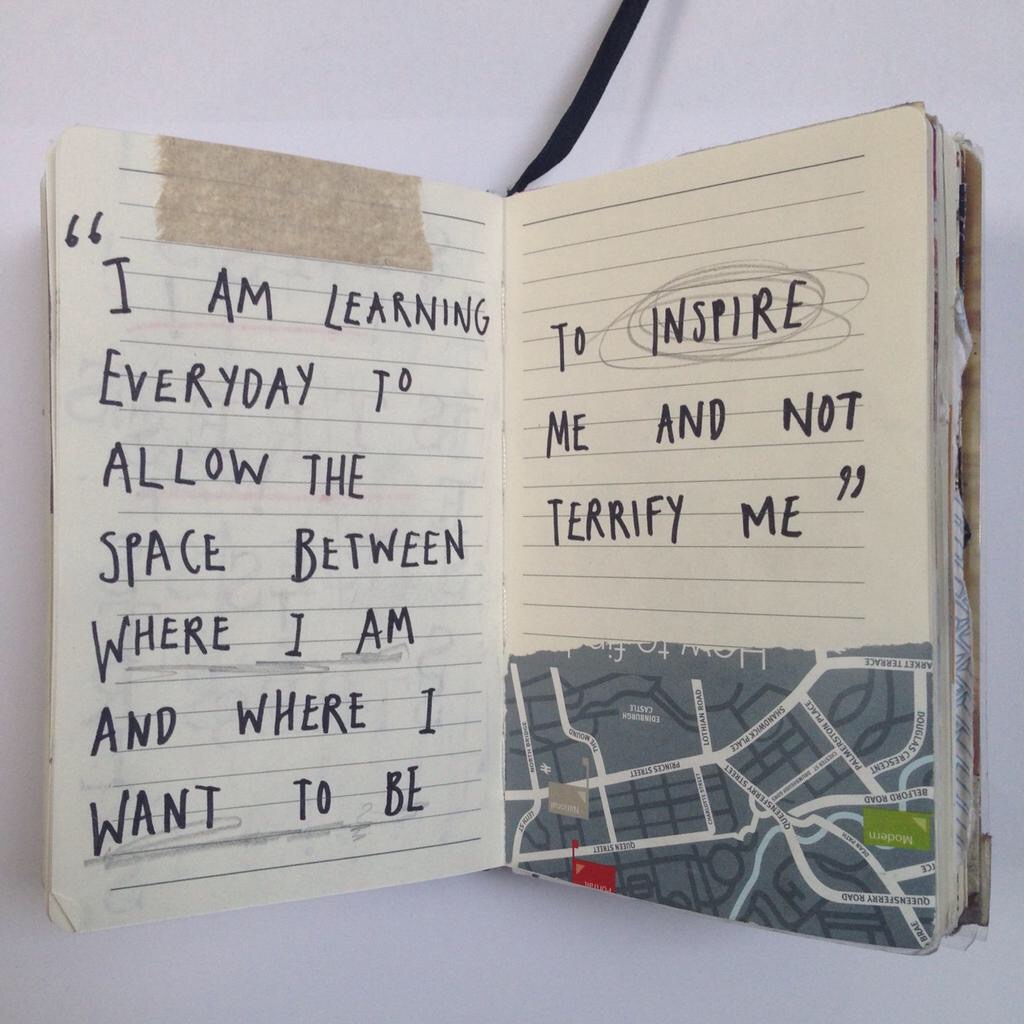 “
I AM LEARNING
EVERYDAY TO
ALLOW THE
SPACE BETWEEN
WHERE I AM
AND WHERE I
WANT TO BE
TO INSPIRE
ME AND NOT
TERRIFY ME ”
How to find
MARKET TERRACE
EDINBURGH
CASTLE
LOTHIAN ROAD
SHANDWICK PLACE
PALMERSTON PLACE
DOUGLAS CRESCENT
NORTH BRIDGE
THE MOUND
PRINCES STREET
CHARLOTTE STREET
QUEENSFERRY STREET
BELFORD ROAD
National
Modern
LEITH ST
QUEEN STREET
DEAN PATH
Portrait
QUEENSFERRY ROAD
BRAE